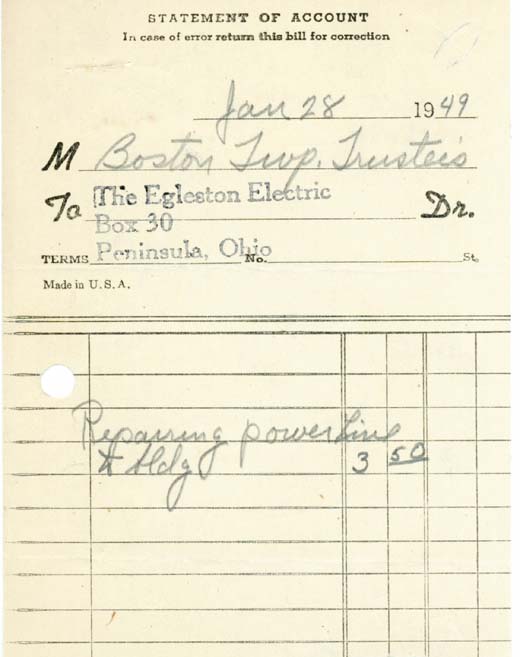 STATEMENT OF ACCOUNT
In case of error return this bill for correction
Jan 28 1949
M Boston Twp. Trustees
To The Egleston Electric Dr.
Box 30
TERMS Peninsula, Ohio No. St.
Made in U. S. A.
Repairing power line
to bldg 3 50